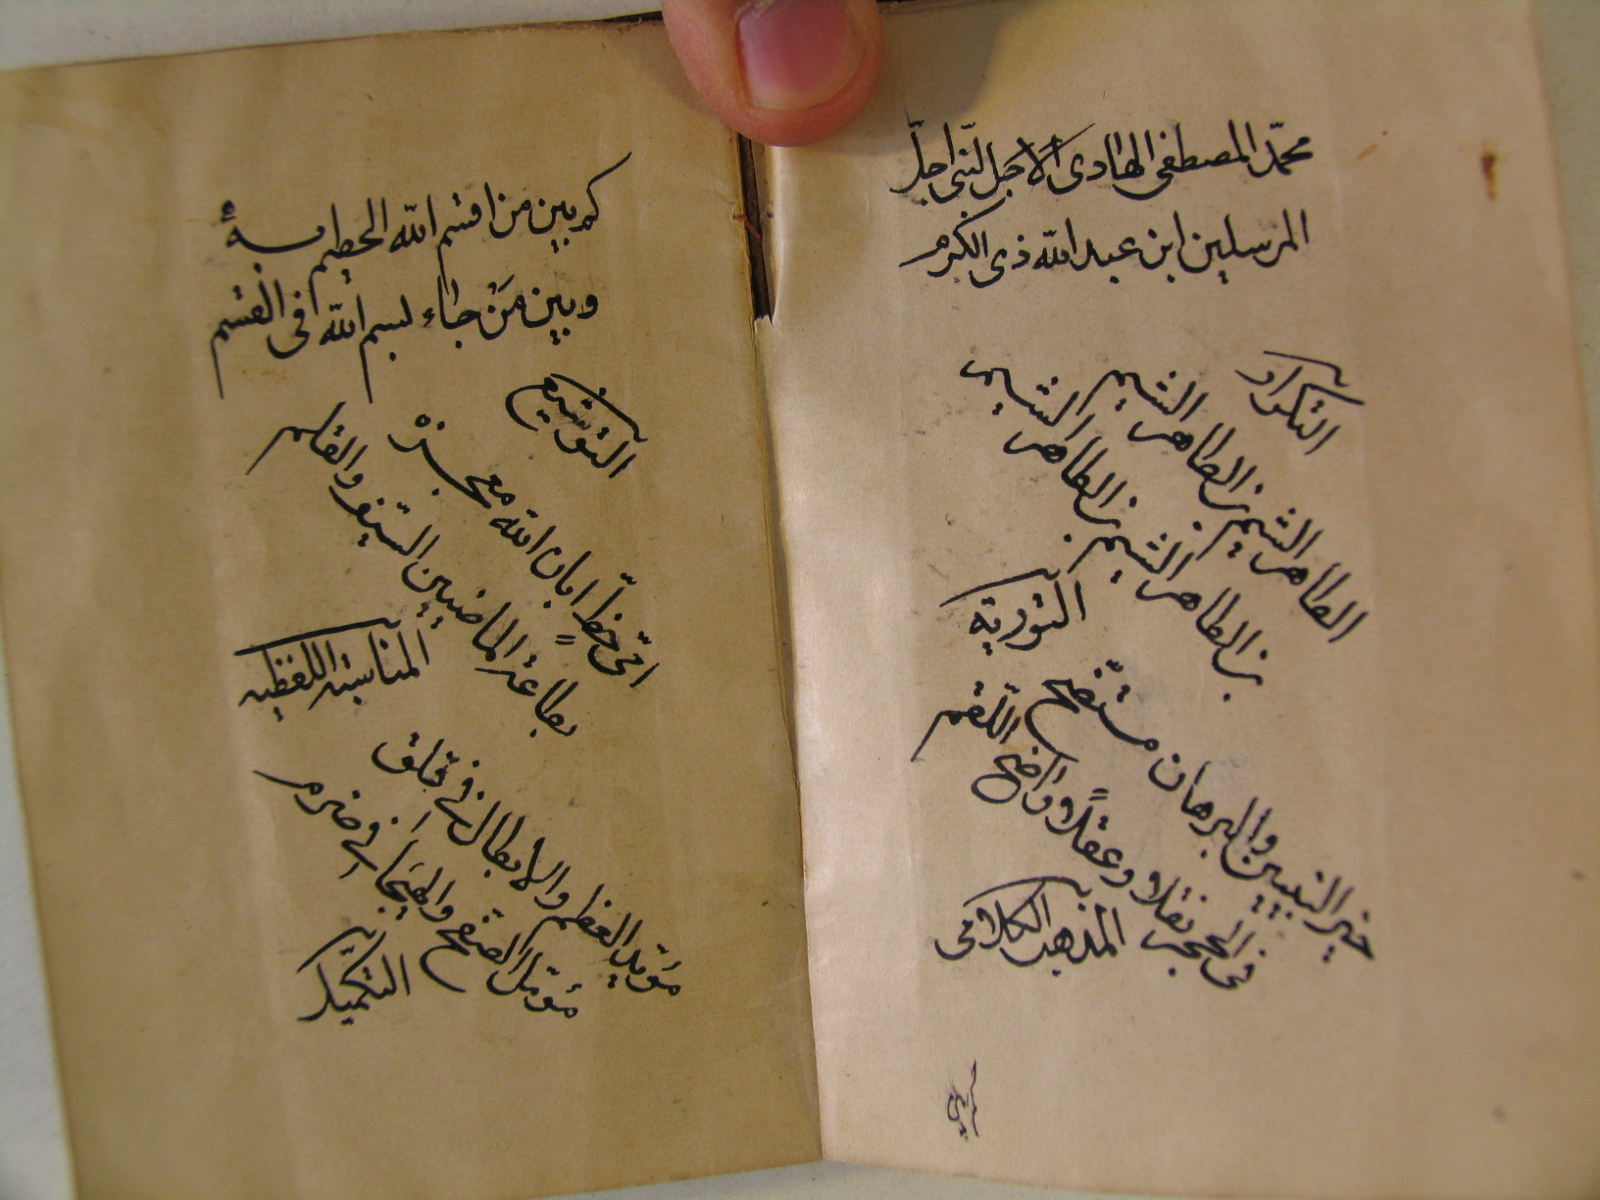 محمّد المصطفى الهادى الاجل النبى اجلّ
المرسلين ابن عبد الله ذى الكرم
التكرار
الطاهر الشيم بن الطاهر الشيم
بن الطاهر الشيم بن الطاهر الشيم
التورية
خير النبيين والبرهان متضح
فى الحجر نقلا وعقلاً واضح اللقم
المذهب الكلامى
كم بين من اقسم الله العظيم به
وبين مَنْ جاء بسم الله فى القسم
التوشيع
امّى خطٍّ ابان الله معجزه
بطاعة الماضيين السيف والقلم
المناسبة اللفظيه
مؤيد العظم والابطال فى قلق
مُؤمّل الصفح والهيجا فى ضرم
التكميل